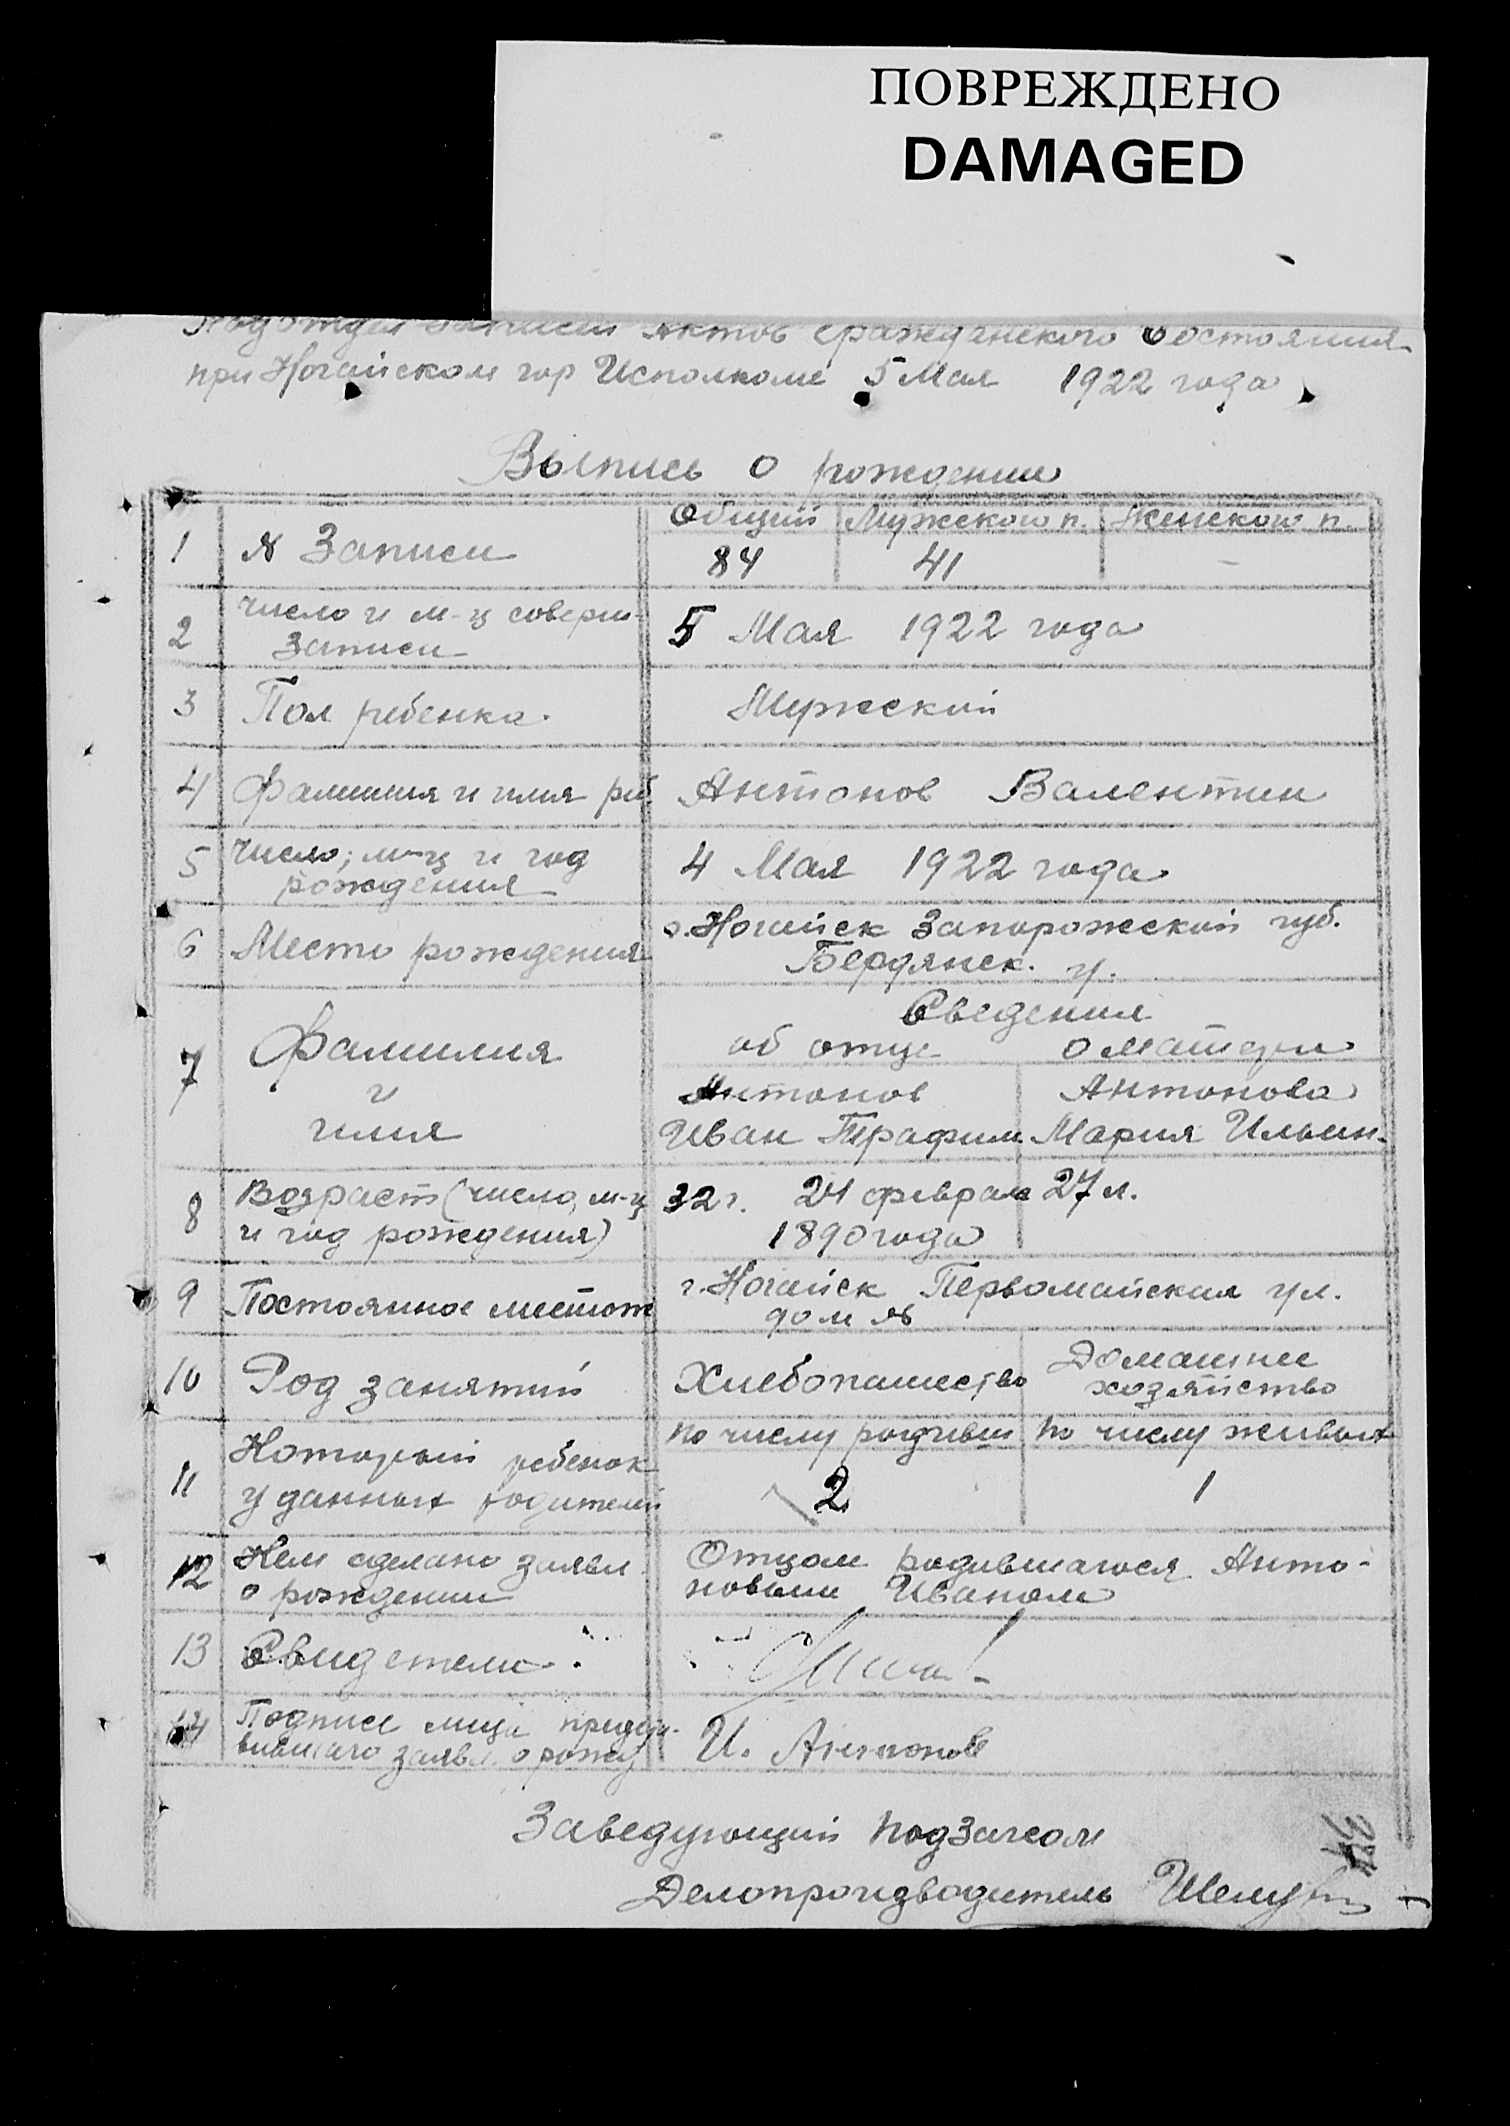 ПОВРЕЖДЕНО
DAMAGED
Подотдел Записей Актов Гражданского Состояния
при Ногайском гор Исполкоме 5 Мая 1922 года
Выпись о рождении
Общий Мужского п. Женского п.
1 № Записи 84 41 –
2 число и м-ц соверш-
записи
5 Мая 1922 года
3 Пол ребенка. Мужский
4 Фамилия и имя реб Антонов Валентин
5 Число, м-ц и год
рождения
4 Мая 1922 года
6 Место рождения
г. Ногайск Запорожской губ.
Бердянск. у.
7 Фамилия
и
имя
Сведения
об отце о матери
Антонов Антонова
Иван Трафим. Мария Ильин.
8 Возраст (число, м-ц
и год рождения)
32 г. 24 февраля 27 л.
1890 года
9 Постоянное местож
г. Ногайск Первомайская ул.
дом №
10 Род занятий Хлебопашество Домашнее
хозяйство
11 Который ребенок
у данных родителей
по числу родивш по числу живых
2 1
12 Кем сделано заявл
о рождении
Отцом родившагося Анто-
новым Иваном
13 Свидетели
14 Подписи лица
заявл. о рожд
И. Антонов
Заведующий подЗагсом
Делопроизводитель